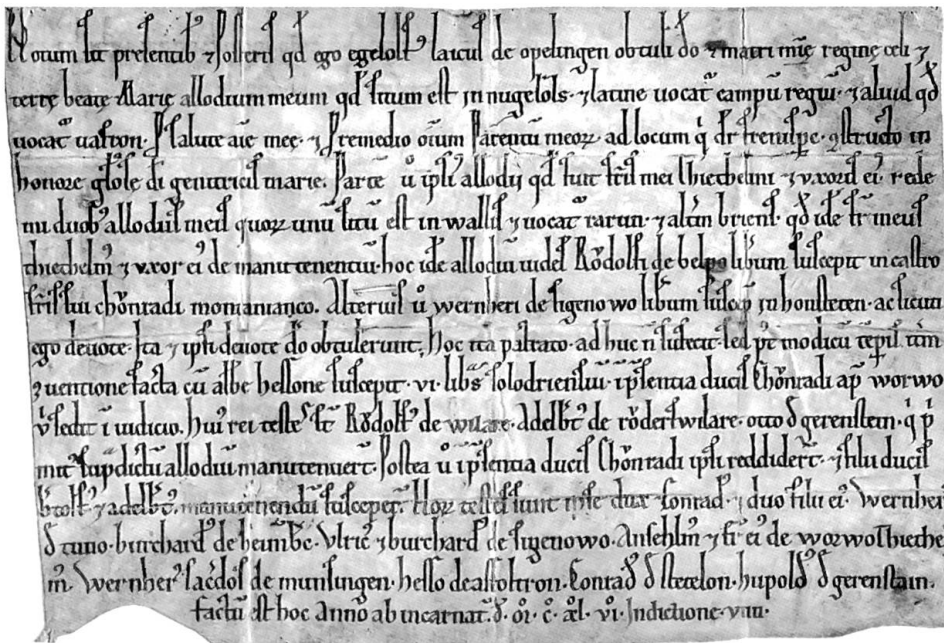 Notum sit presentib' ⁊ posteris qd ego egelolf' laicus de opelingen obtuli do ⁊ matri mie regine celi ⁊
terre beate Marie allodium meum qd situm est in nugerols ⁊ latine uocat campu regui ⁊ aliud qd
uocat uastron. p salute aie mee ⁊ p remedio oium parentu meoꝝ ad locum qi dr constructo in
honore gliose di genitricis marie. Parte u ipsi allodii qd fuit fris mei thiethelmi ⁊ uxoris ei' rede
mi duob' allodiis meis quoꝝ unu situ est in wallis ⁊ uocat rarun ⁊ altm briens. qd ide fr meus
diethelm' ⁊ uxor ei' de manutenentiu hoc ide allodiu uidel Rodolfi de belpo libum suscepit in castro
fris sui chonradi Alterius u wernheri de sigenowo libum suscep in honsteten. ac sicuti
ego deuote. Ita ⁊ ipsi deuote do obtulerunt. Hoc ita patrato. ad huc n sufecit. sed pt modicu tepus itm
ꝯuentione facta cu albe hessone suscepit. vi. libs solodriensiu. i psentia ducis Chonradi ap worwo
u sedit i iudicio. Hui' rei testes st Rodolf' de wilare. adelbt' de roderswilare. otto d gerenstein. qi p
mit supdictu allodiu manutenuert. Postea u i psentia ducis Chonradi ipsi reddidert. ⁊ filii ducis
btolf' ⁊ adelbt'. manutenendu suscepert. Hoꝝ testes sunt ipse dux Conrad'. ⁊ duo filii ei'. Wernheri
d tuno. burchard' de heimbc. Vlric' ⁊ burchard' de sigenowo. Anselhm' ⁊ fr ei' de worwo thiethe
m'. Wernher' sacdos de munsingen. hesso de assoltron. Conrad d stecelon. hupold' d gerenstain.
factu est hoc anno ab incarnat. d. oi. c. xl. vi. Indictione. viiii.